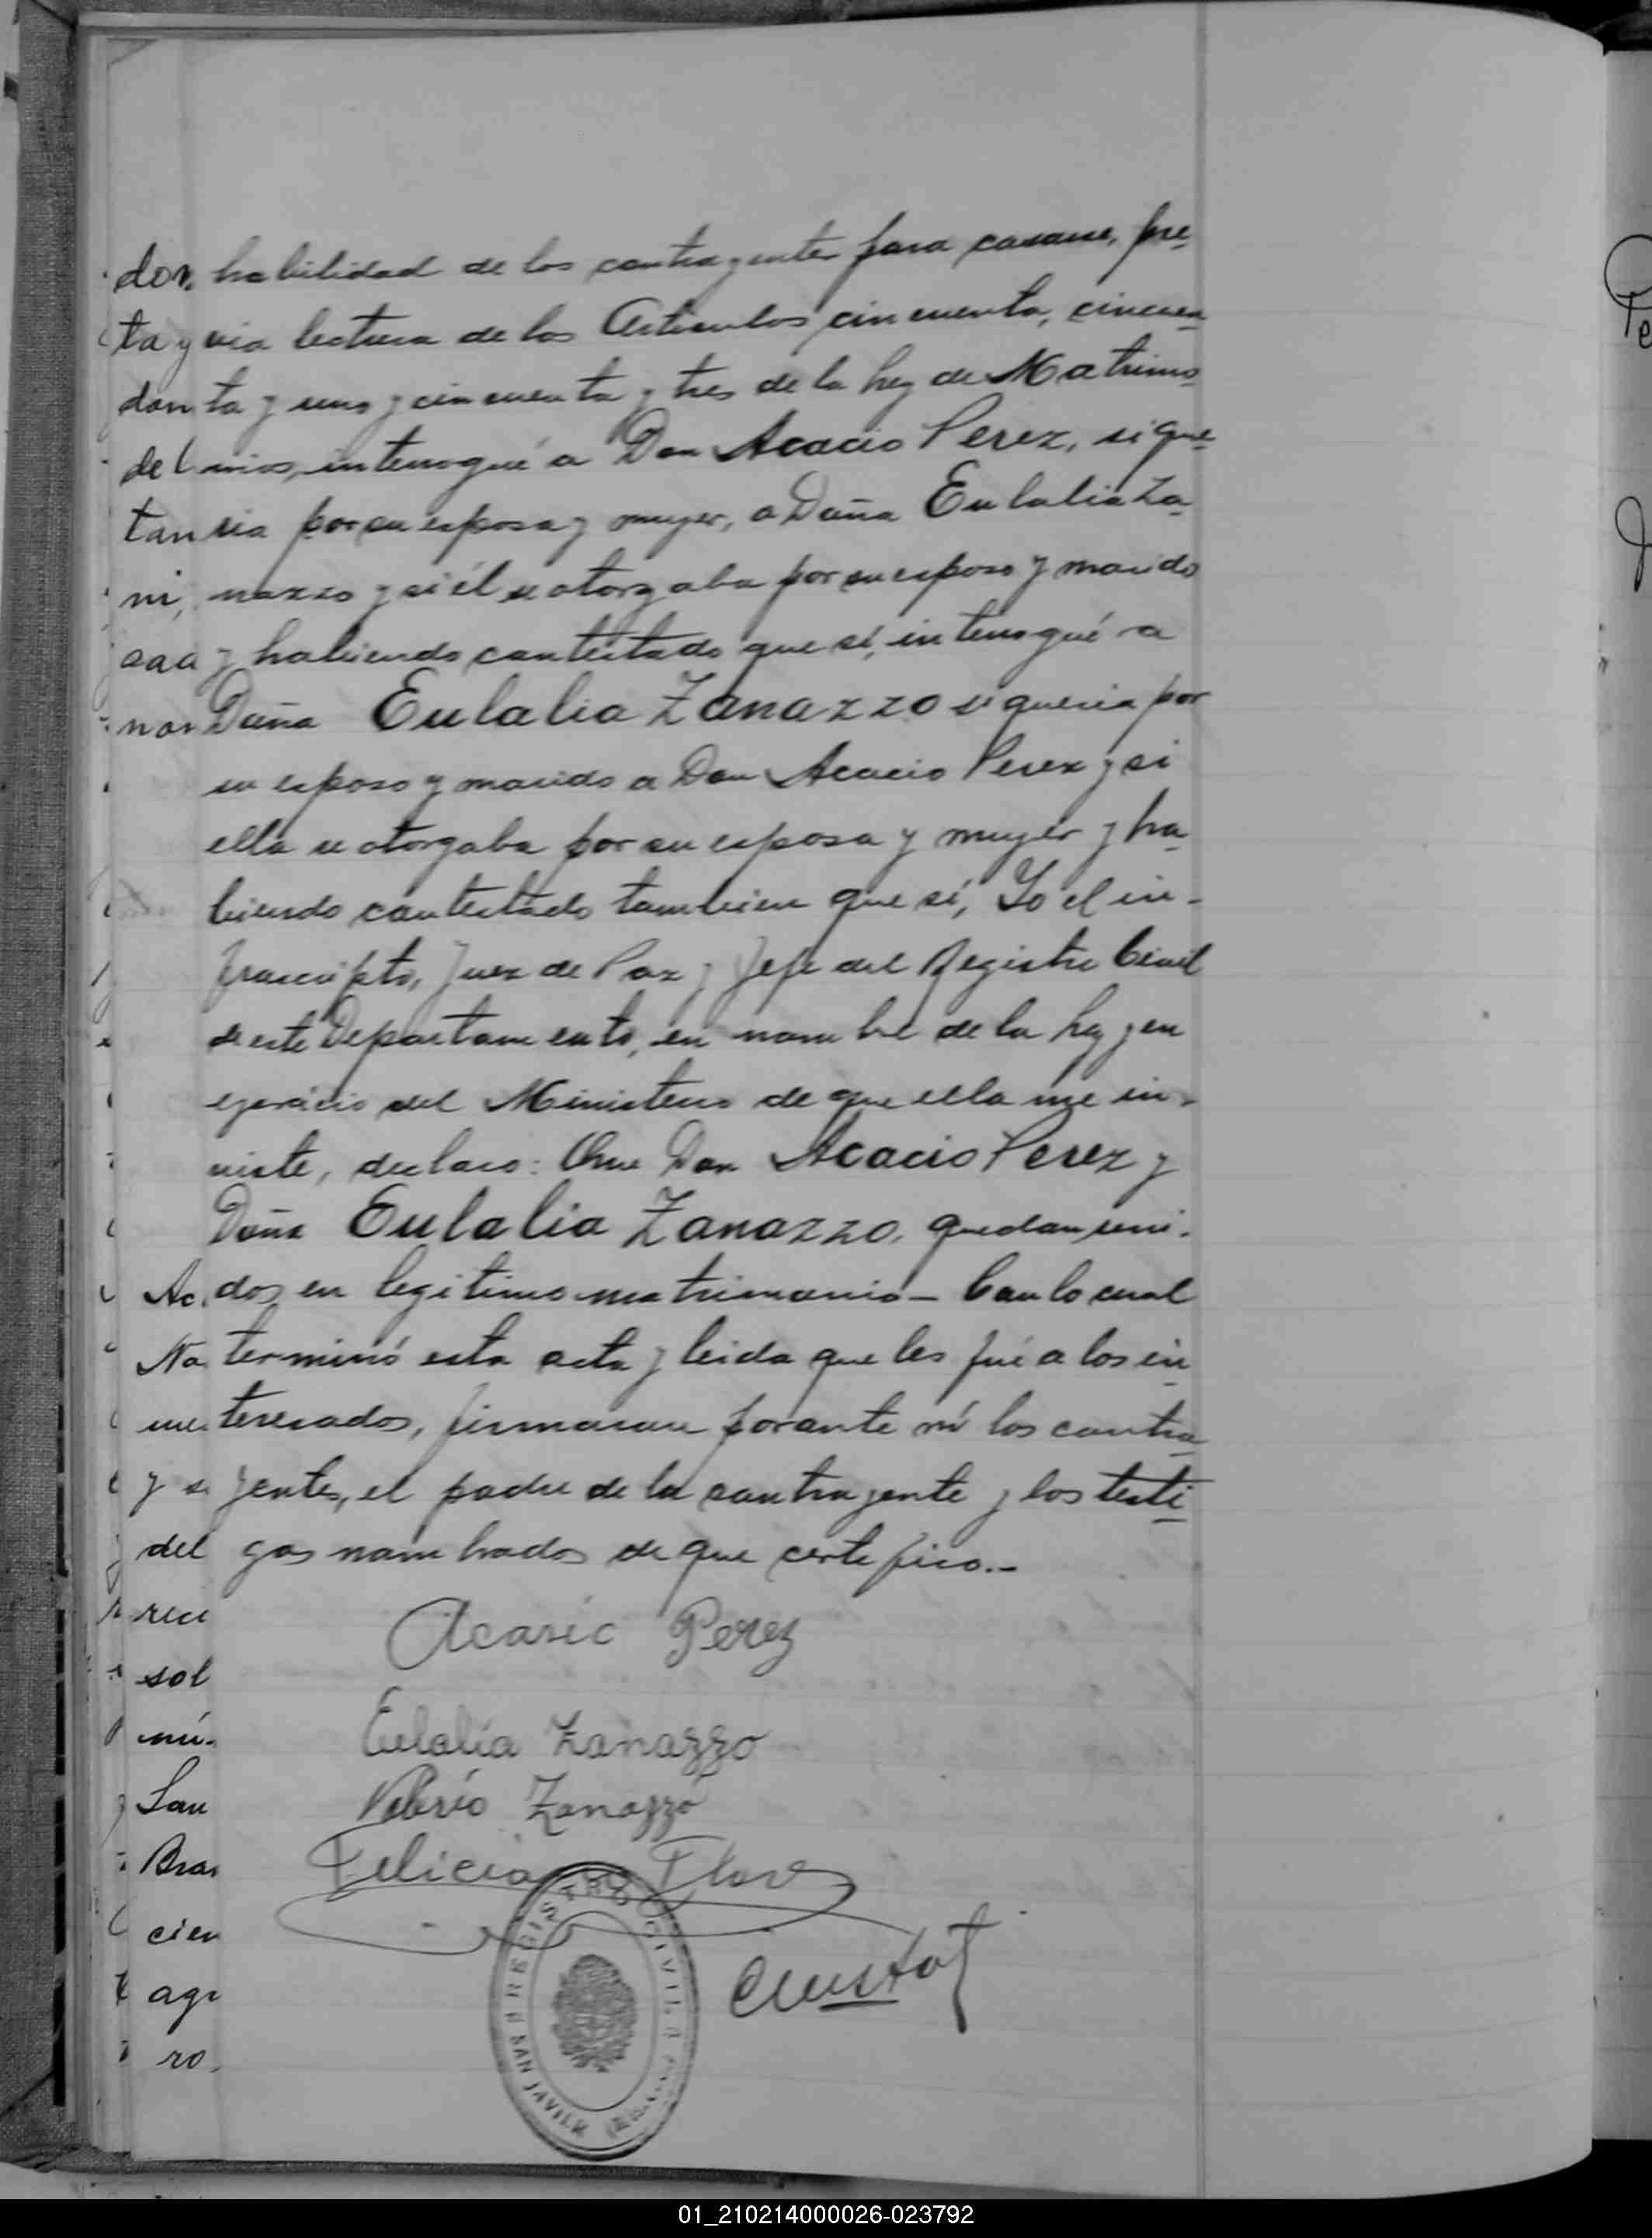 don habilidad de los contrayentes para casarse, pre-
ta y via lectura de los Articulos cincuenta, cincuen-
don ta y uno y cincuenta y tres de la Ley de Matrimo-
del nios, interrogué a Don Acacio Perez, si que-
tan ria por su esposa y muger, a Doña Eulalia Za-
ni, nazzo y si él se otorgaba por su esposo y marido
aaa y habiendo contestado que sí, interrogué a
nor Doña Eulalia Zanazzo si queria por
su esposo y marido a Don Acacio Perez y si
ella se otorgaba por su esposa y muger y ha-
biendo contestado tambien que sí, Yo el in-
frascripto, Juez de Paz y Jefe del Registro Civil
de este Departamento, en nombre de la Ley y en
ejercicio del Ministerio de que ella me in-
viste, declaro: Que Don Acacio Perez y
Doña Eulalia Zanazzo, quedan uni-
Ac. dos en legitimo matrimonio - Con lo cual
Na terminó esta acta y leida que les fué a los in-
teresados, firmaron por ante mí los contra-
y s yentes, el padre de la contrayente y los testi-
del gos nombrados de que certifico.-
reci
sol
mi-
San
Bras
cien
agr
ro,
Acasio Perez
Eulalia Zanazzo
Zanazzo
Felicia
REGISTRO CIVIL
SAN JAVIER
01_210214000026-023792